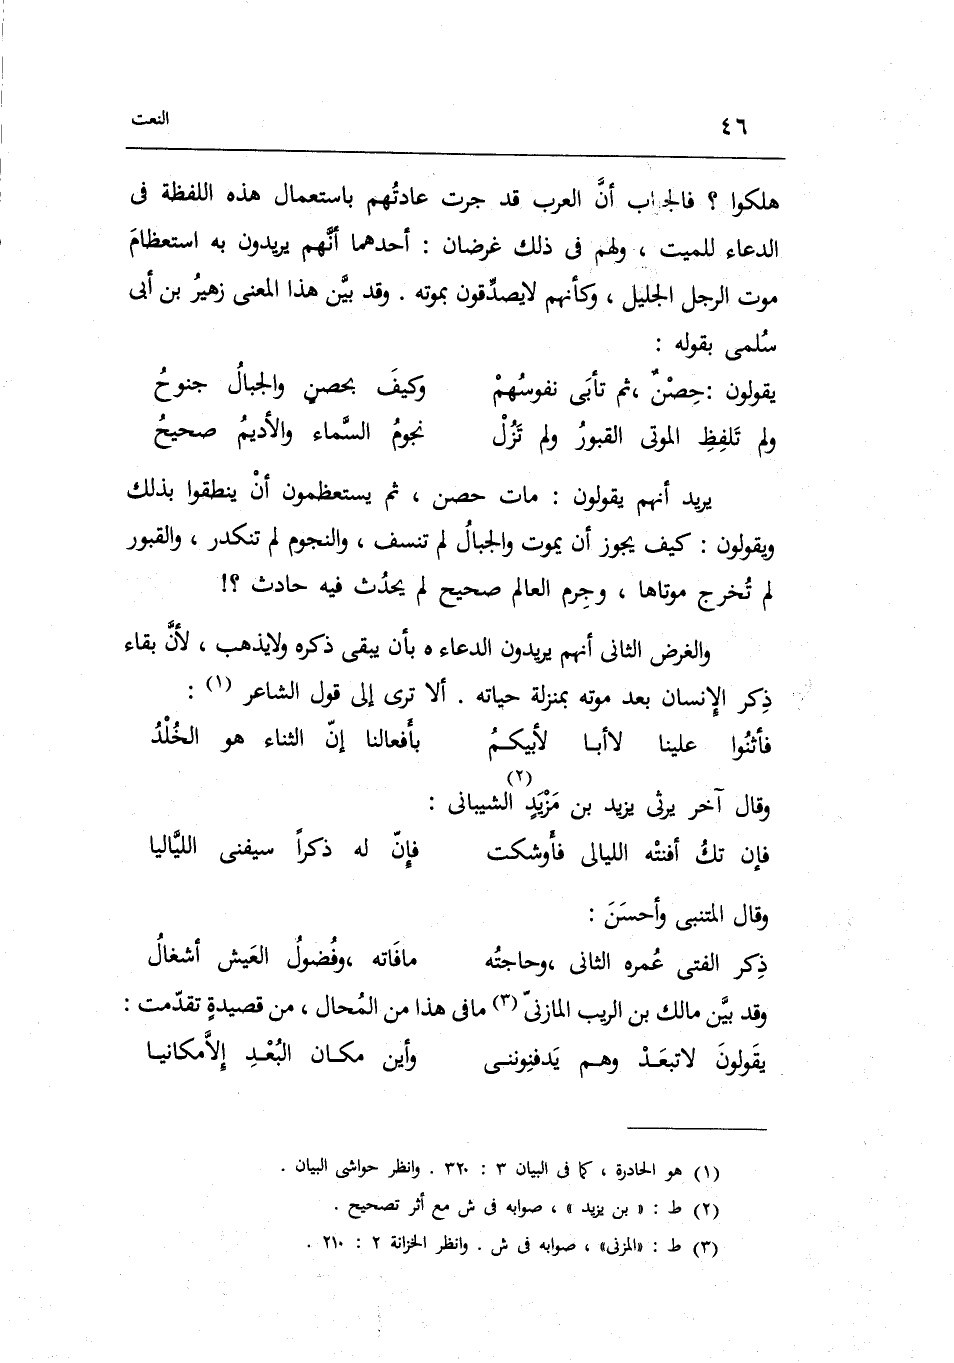 ٤٦ النعت
هلكوا ؟ فالجواب أنَّ العرب قد جرت عادتُهم باستعمال هذه اللفظة فى
الدعاء للميت ، ولهم فى ذلك غرضان : أحدهما أنَّهم يريدون به استعظامَ
موت الرجل الجليل ، وكأنهم لايصدِّقون بموته . وقد بيَّن هذا المعنى زهيرُ بن أبى
سُلمى بقوله :
يقولون :حِصْنٌ ،ثم تأبَى نفوسُهمْ وكيفَ بحصنٍ والجبالُ جنوحُ
ولم تَلفِظِ الموتى القبورُ ولم تَزُلْ نجومُ السَّماء والأديمُ صحيحُ
يريد أنهم يقولون : مات حصن ، ثم يستعظمون أنْ ينطقوا بذلك
ويقولون : كيف يجوز أن يموت والجبالُ لم تنسف ، والنجوم لم تنكدر ، والقبور
لم تُخرج موتاها ، وجِرم العالم صحيح لم يحدُث فيه حادث ؟!
والغرض الثانى أنهم يريدون الدعاء ه بأن يبقى ذكره ولايذهب ، لأنَّ بقاء
ذِكر الإِنسان بعد موته بمنزلة حياته . ألا ترى إلى قول الشاعر (١) :
فأثنُوا علينا لاأبـا لأبيكـمُ بأَفعالنا إنّ الثناء هو الخُلْدُ
وقال آخر يرثى يزيد بن مَزْيَدٍ (٢) الشيبانى :
فإن تكُ أفنتْه الليالى فأَوشكت فإِنّ له ذكراً سيفنى اللَّياليا
وقال المتنبى وأحسَنَ :
ذِكر الفتى عُمره الثانى ،وحاجتُه مافَاته ،وفُضولُ العَيش أشغالُ
وقد بيَّن مالك بن الريب المازنىّ (٣) مافى هذا من المُحال ، من قصيدةٍ تقدّمت :
يقَولونَ لاتبعَـدْ وهـم يَدفِنوننـى وأين مكـان البُعْـدِ إِلاَّمكانيـا
(١) هو الحادرة ، كما فى البيان ٣ : ٣٢٠ . وانظر حواشى البيان .
(٢) ط : « بن يزيد » ، صوابه فى ش مع أثر تصحيح .
(٣) ط : «المزنى» ، صوابه فى ش . وانظر الخزانة ٢ : ٢١٠ .